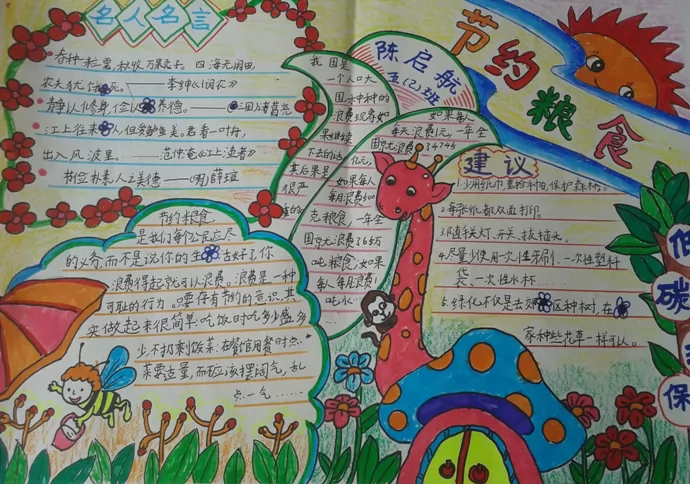 名人名言
春种一粒粟,秋收万果子。四海无闲田,
农夫犹饿死。——李绅《悯农》
静以修身,俭以养德。——三国诸葛亮
江上往来人,但爱鲈鱼美。君看一叶舟,
出入风波里。——范仲淹《江上渔者》
节俭朴素,人之美德——(明)薛瑄
节约粮食
是我们每个公民应尽
的义务,而不是说你的生活好了,你
浪费得起就可以浪费。浪费是一种
可耻的行为。只要存有节约的意识,其
实做起来很简单:吃饭时吃多少盛多
少,不扔剩饭菜;在餐馆用餐时点
菜要适量,而不应该摆阔气,乱
点一气……
我国是
一个人口大
国
浪费现象如
果继续
下去的话,
其后果是
很严
陈启航
五(2)班
如果每人
每天浪费1元,一年全
亿元;
如果每人
每月浪费500
克粮食,一年全
国就要浪费365万
吨粮食;如果
每人每月浪费1
吨水……
节约粮食
建议
1.少用纸巾,重拾手帕,保护森林。
2.每张纸都双面打印。
3.随手关灯、开关、拔插头。
4.尽量少使用一次性牙刷、一次性塑料
袋、一次性水杯……
5.绿化不仅是去郊区种树,在
家种些花草一样可以。
低
碳
保